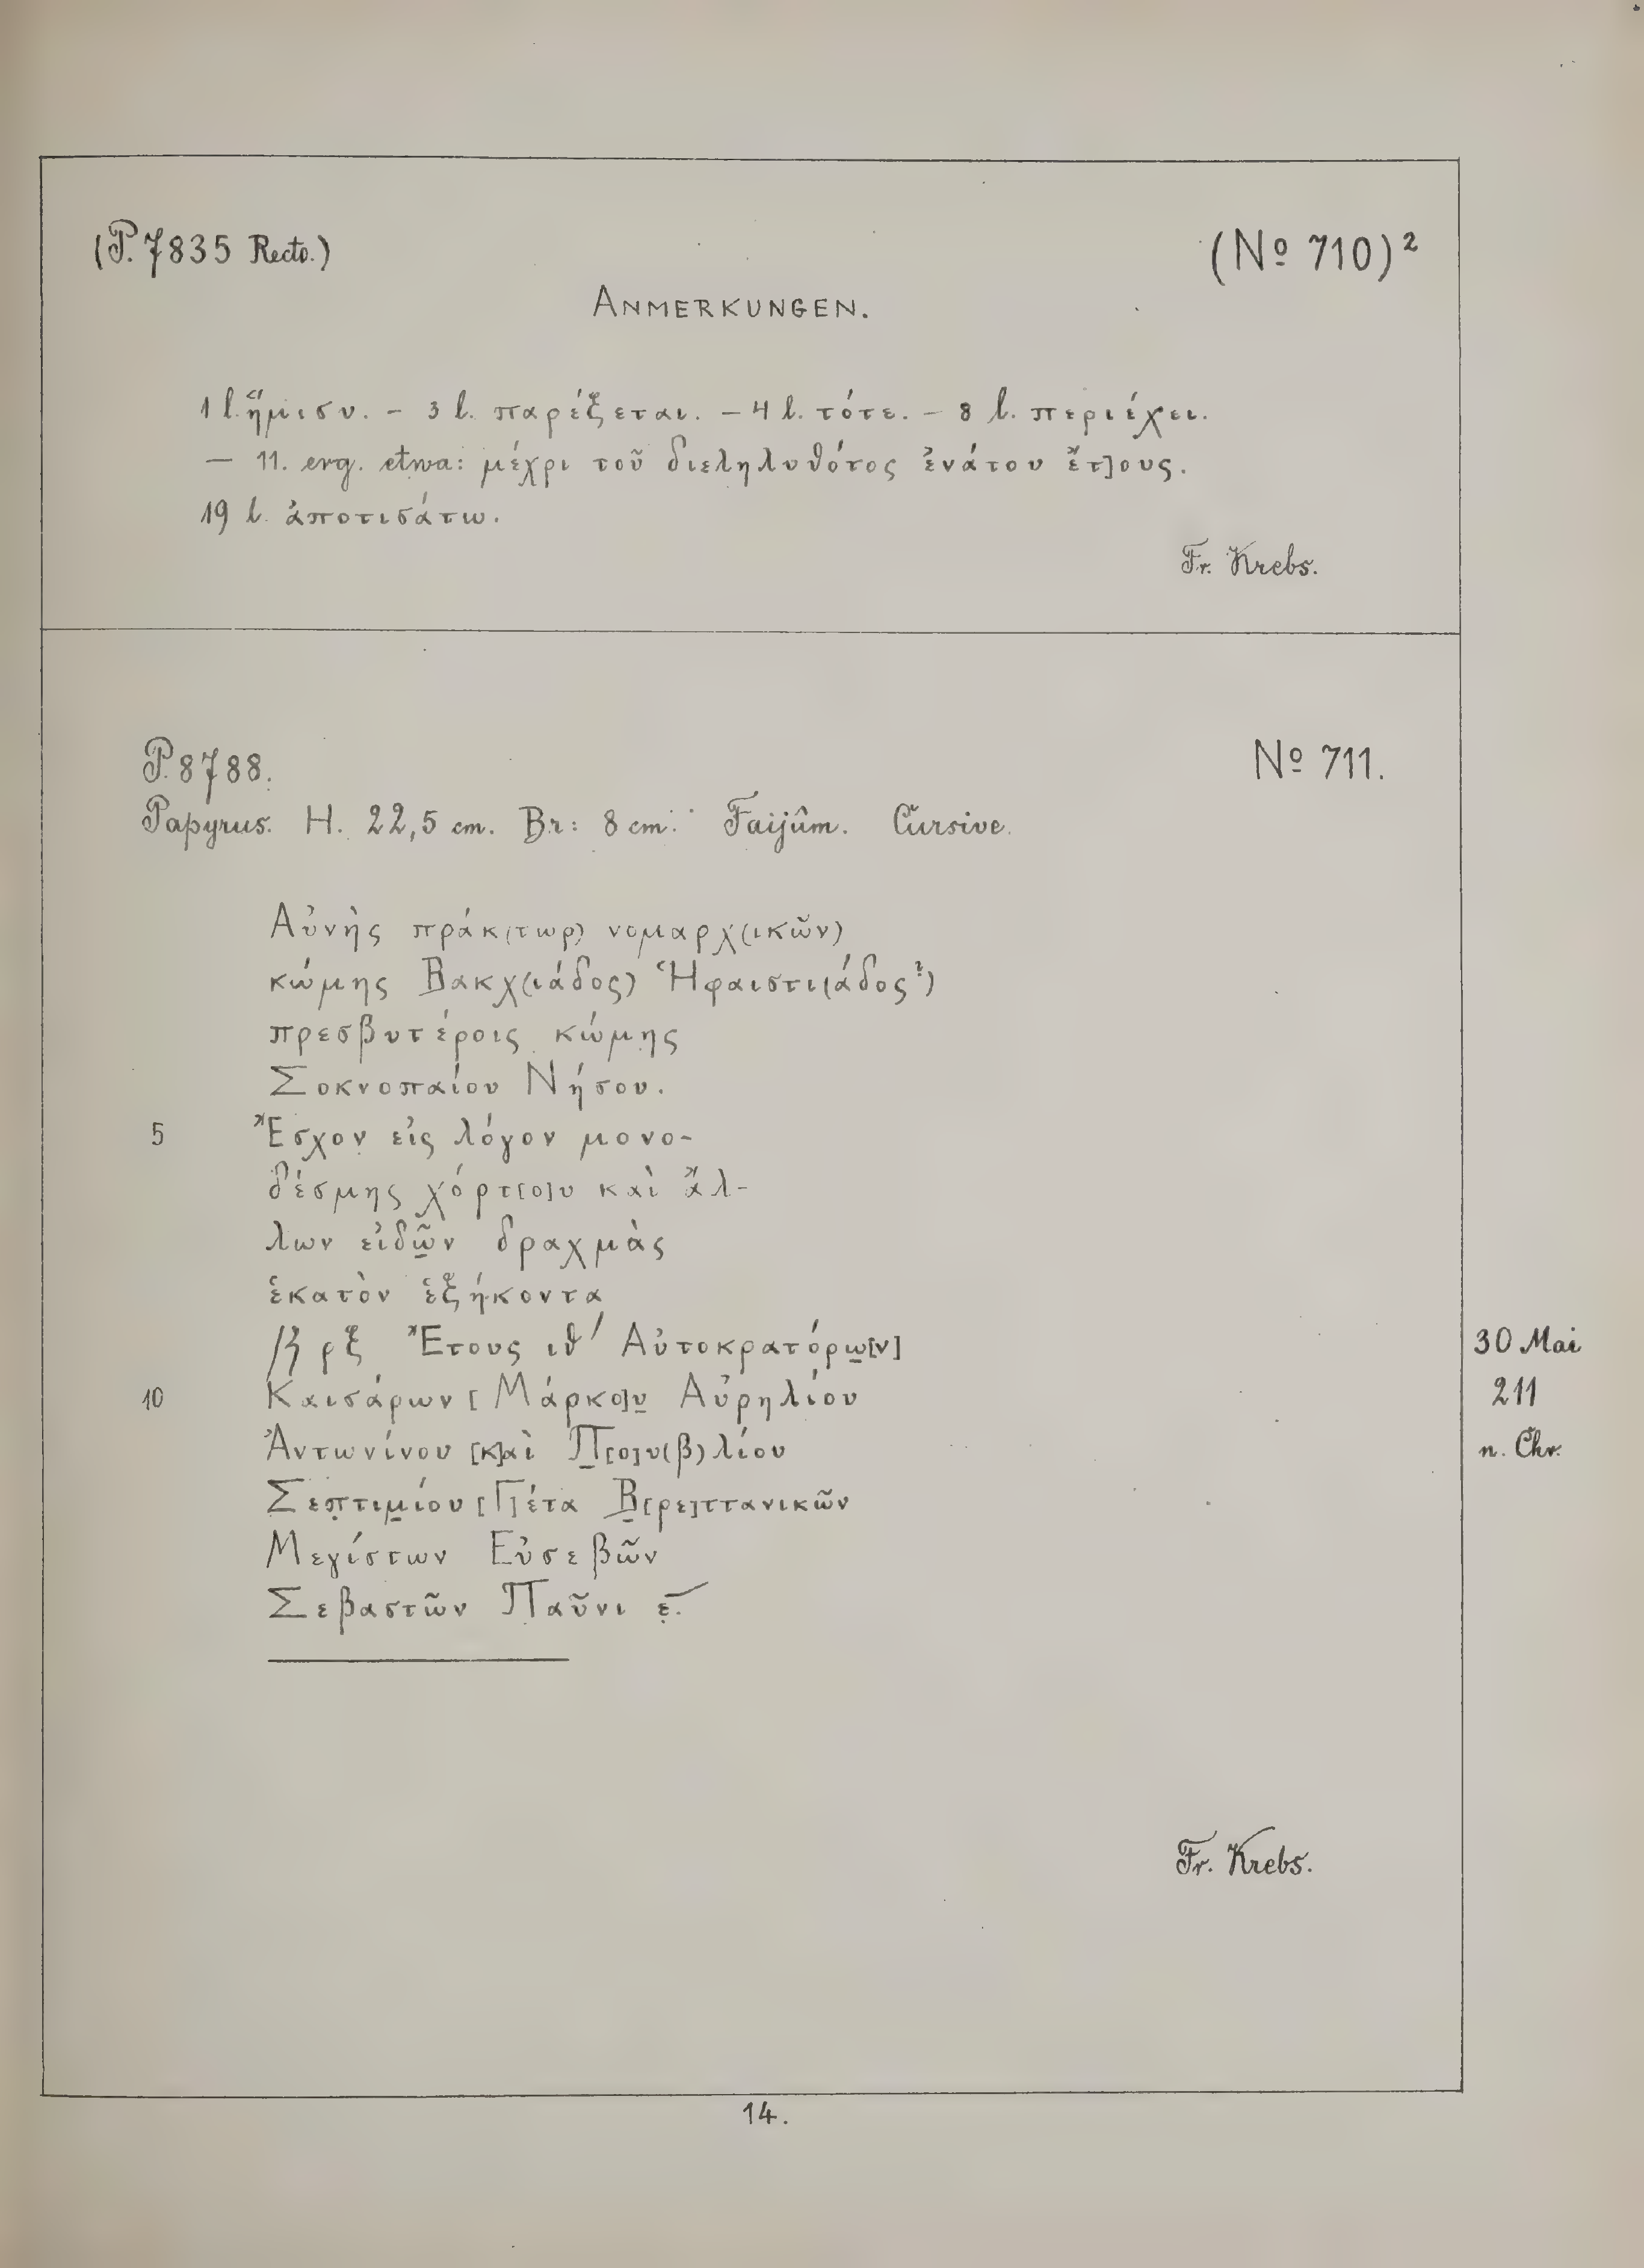 (P. 7835 Recto.)
(Nº 710)²
ANMERKUNGEN.
1 l. ἥμισυ. – 3 l. παρέξεται. – 4 l. τότε. – 8 l. περιέχει.
– 11. erg. etwa: μέχρι τοῦ διεληλυθότος ἐνάτου ἔτ]ους.
19 l. ἀποτισάτω.
Fr. Krebs.
P. 8788.
Nº 711.
Papyrus. H. 22,5 cm. Br: 8 cm. Faijûm. Cursive.
Αὐνὴς πράκ(τωρ) νομαρχ(ικῶν)
κώμης Βακχ(ιάδος) Ἡφαιστι(άδος?)
πρεσβυτέροις κώμης
Σοκνοπαίου Νήσου.
5 Ἔσχον εἰς λόγον μονο-
δέσμης χόρτ[ο]υ καὶ ἄλ-
λων εἰδῶ̣ν δραχμὰς
ἑκατὸν ἑξήκοντα
ρξ Ἔτους ιθ′ Αὐτοκρατόρω̣[ν]
30 Mai
10 Καισάρων [Μάρκο]υ̣ Αὐρηλίου
211
Ἀντωνίνου [κ]αὶ Π̣[ο]υ(β)λίου
n. Chr.
Σεπ̣τιμ̣ίου [Γ]έτα Β̣[ρε]ττανικῶν
Μεγίστων Εὐσεβῶν
Σεβαστῶν Παῦνι ε̣̅.
Fr. Krebs.
14.